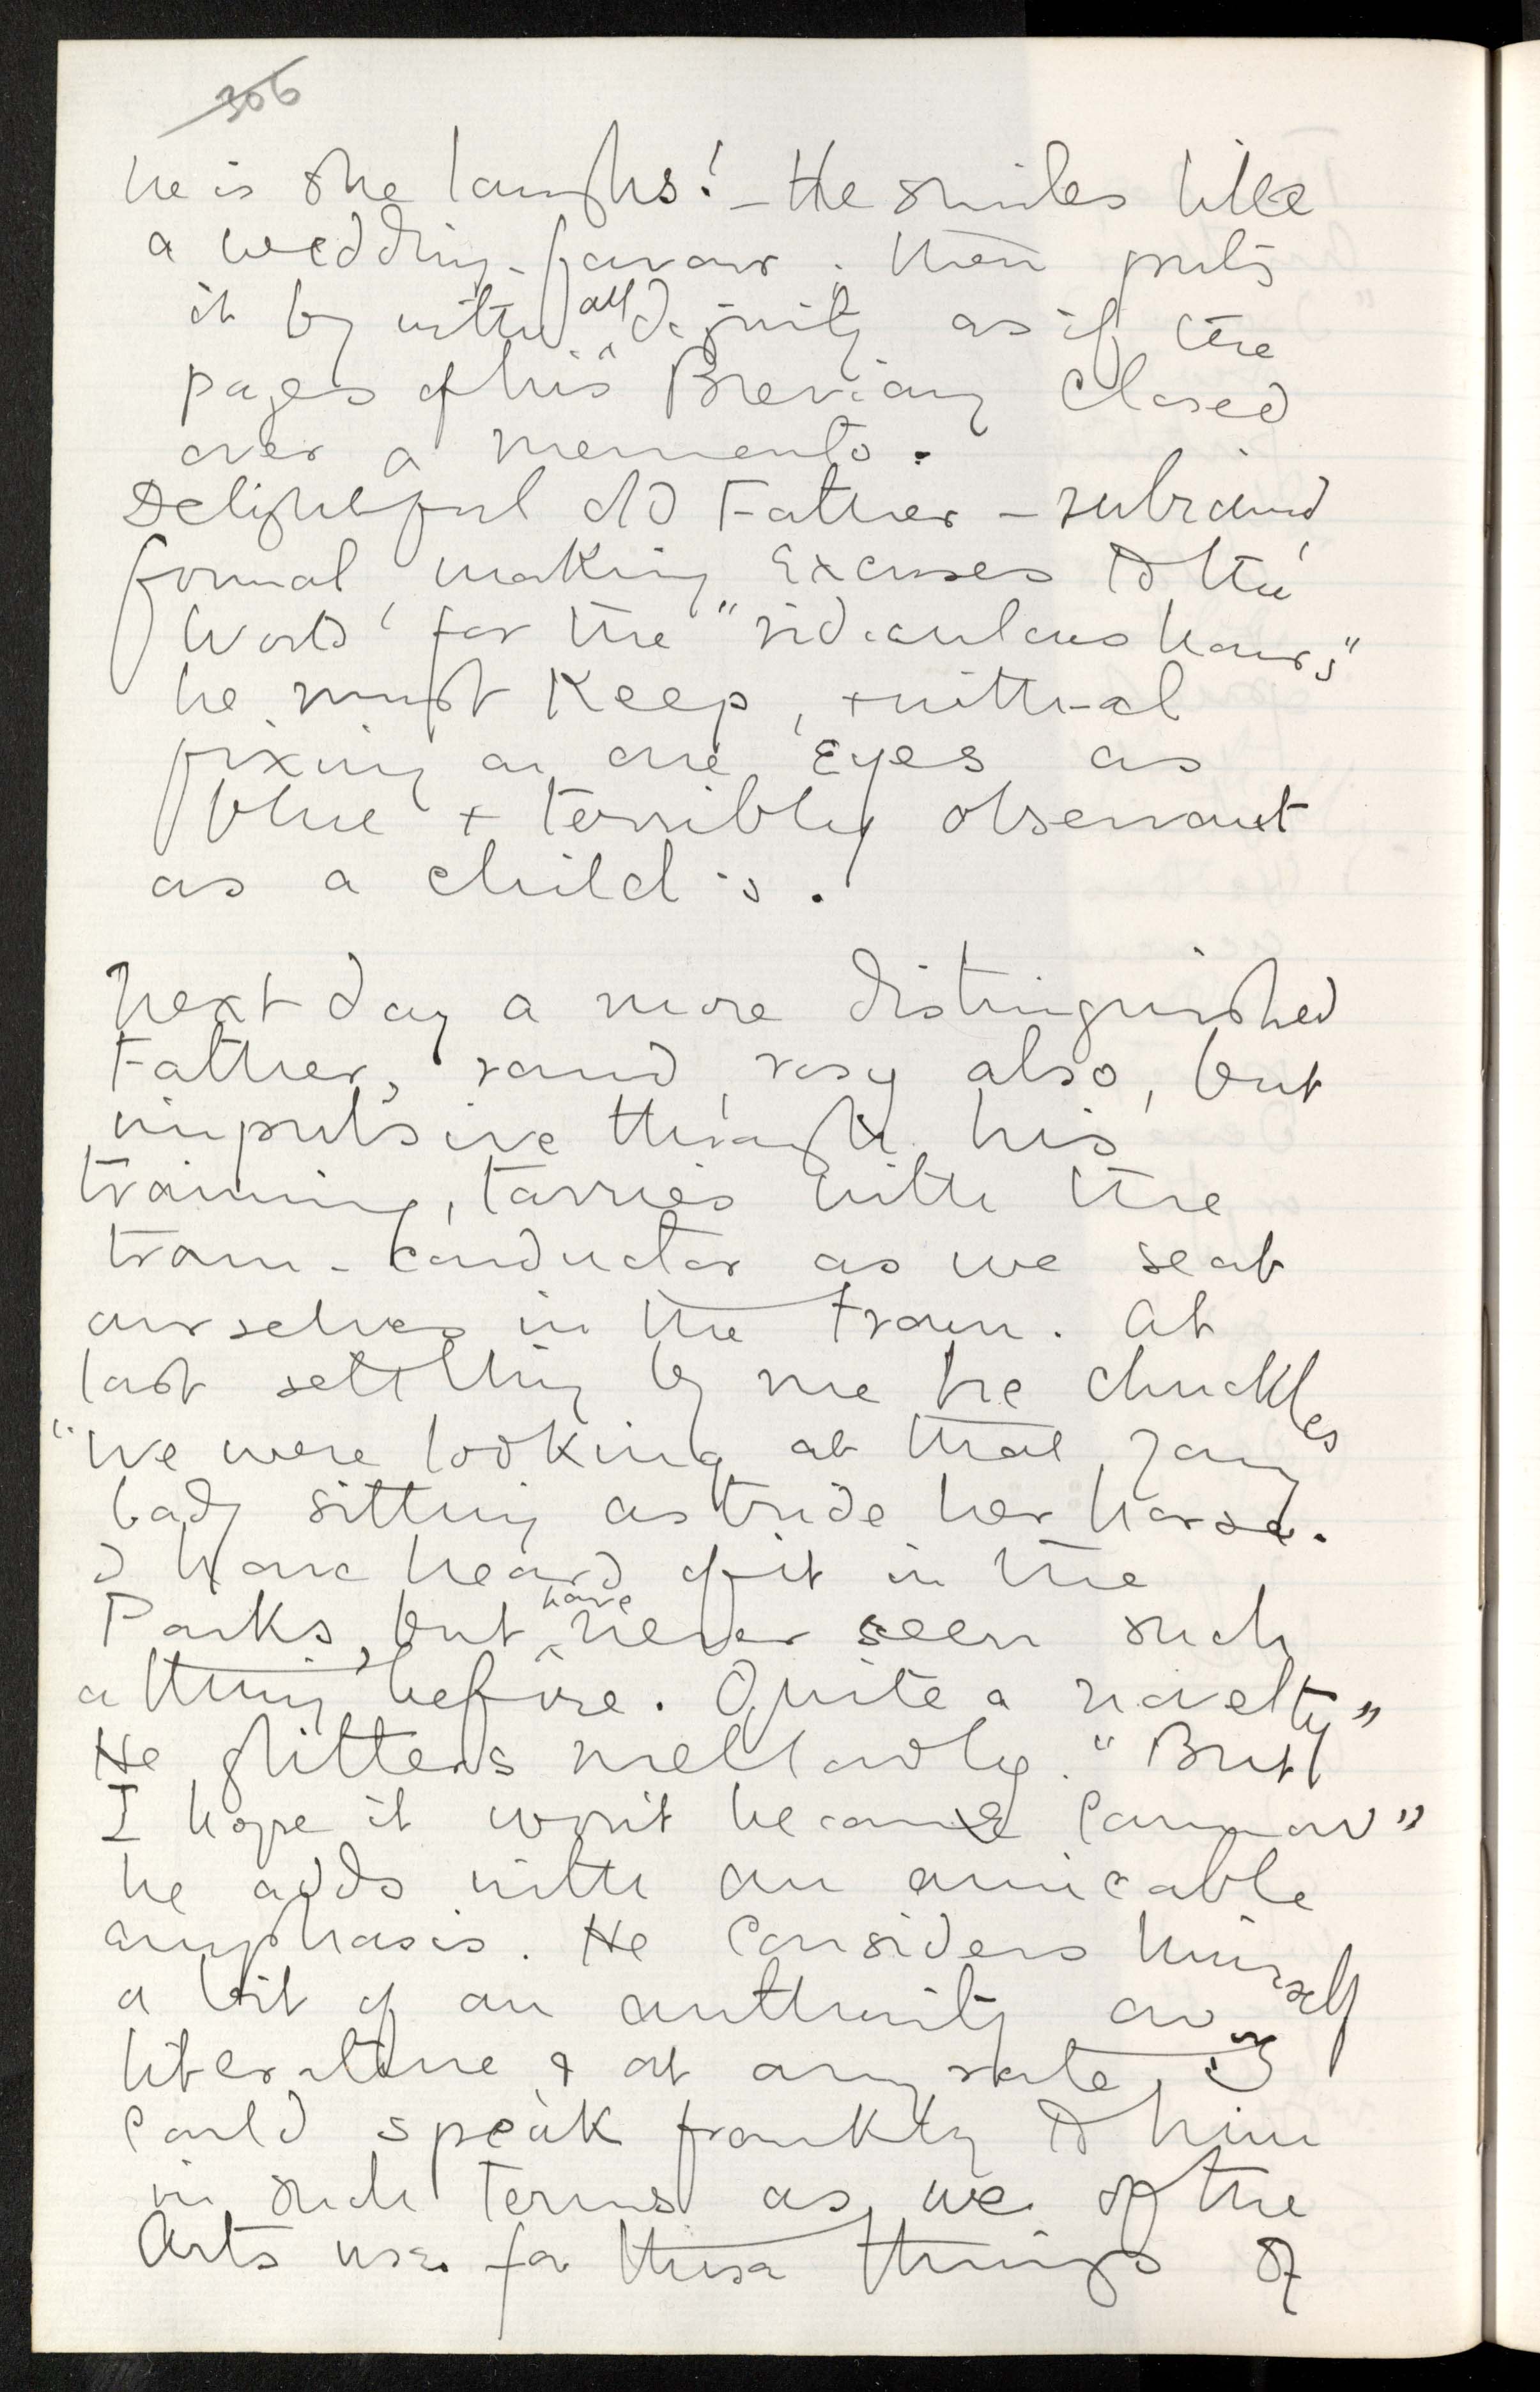 306
he is she laughs! - He smiles like
a wedding-favour. then puts
it by with all dignity as if the
pages of his Breviary closed
over a memento.
Delightful old Father -
formal, making excuses to 'the
World' for the "ridiculous hours"
he must keep, + withal
fixing on one Eyes as
blue + terribly observant
as a child's.
Next day a more distinguished
Father, round, rosy also, but
impulsive through his
training, tarries with the
tram-conductor as we seat
ourselves in the tram. At
last settling by me he chuckles
"We were looking at that young
lady sitting astride her horse.
I have heard of it in the
Parks, but have never seen such
a thing before. Quite a novelty"
He glitters mellowly. "But
I hope it won't become common"
he adds with an amicable
emphasis. He considers himself
a bit of an authority on
literature & at any rate we
could speak frankly to him
in such terms as we of the
Arts use for these things of